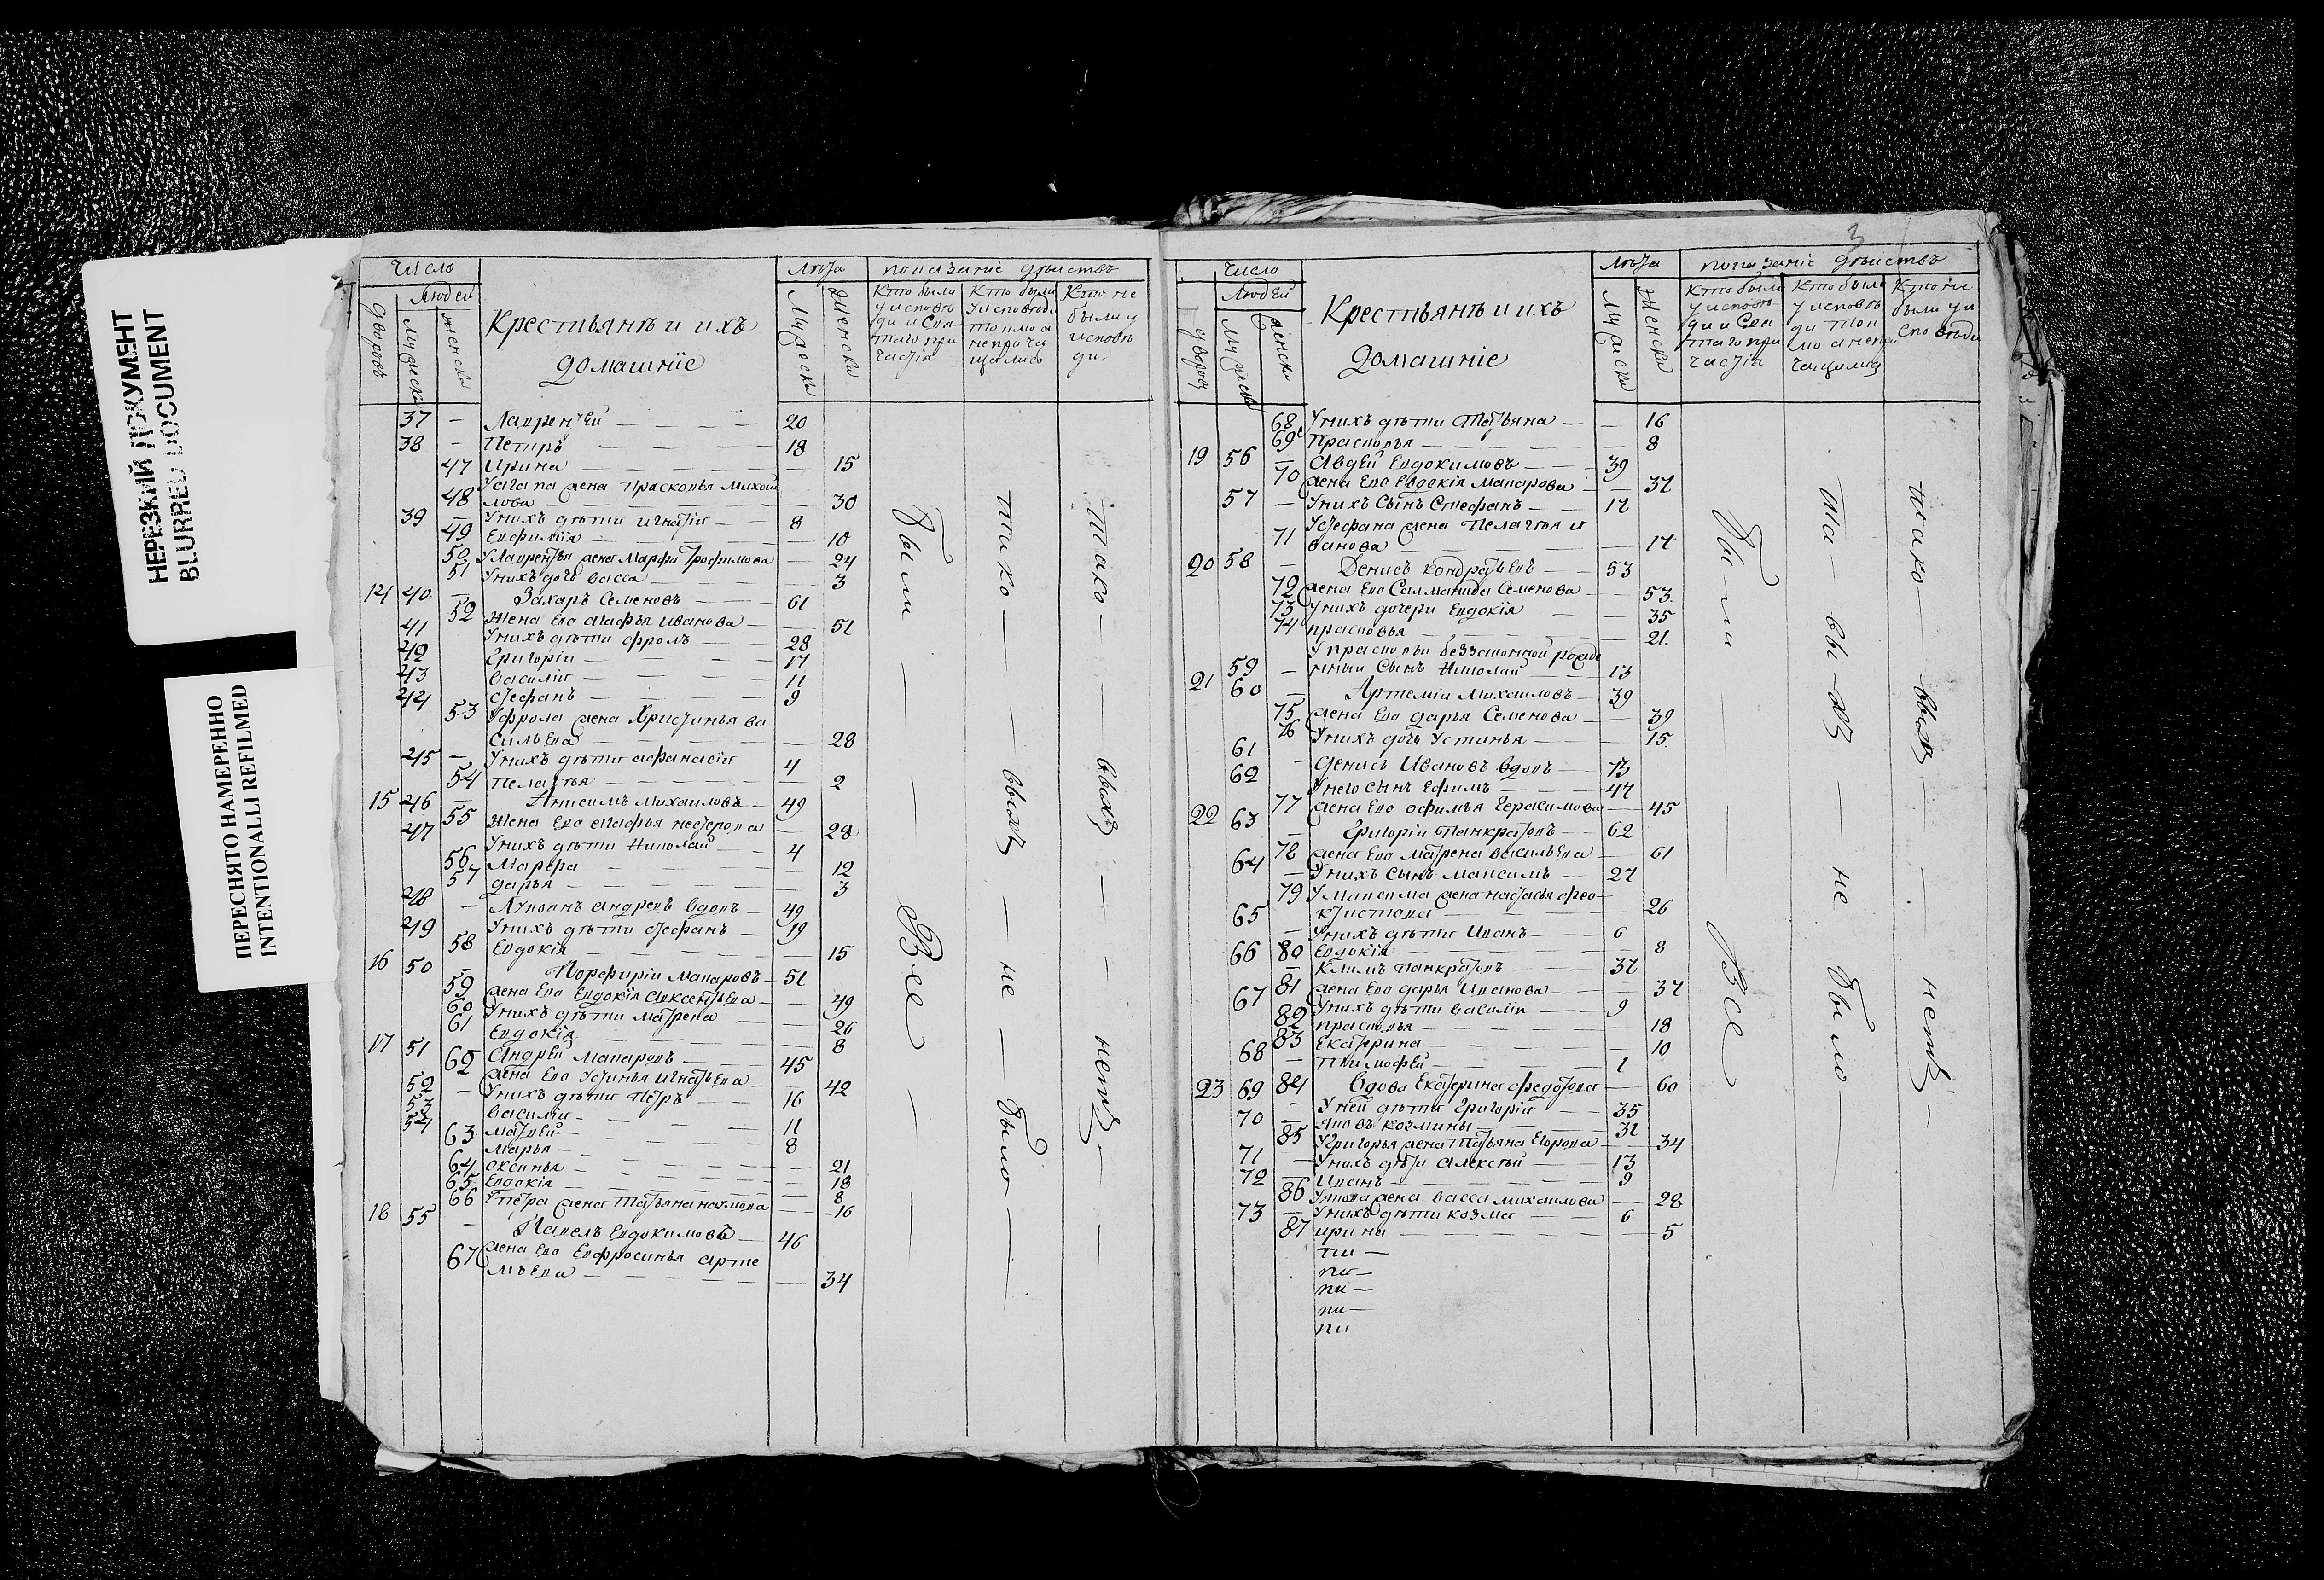 НЕРЕЗКИЙ ДОКУМЕНТ
BLURRED DOCUMENT
ПЕРЕСНЯТО НАМЕРЕННО
INTENTIONALLI REFILMED
Число Крестьянъ и ихъ домашнiе Лѣта показанiе дѣйствъ
дворовъ Людей
Мужеска Женска Мужеска Женска
Кто были у исповѣди и Святаго причастiя
Кто были у исповѣди токмо а не причащались
Кто не были у исповѣди
37 — Лаврентей — 20
38 — Петръ — 18
47 Ирина — 15
жена Прасковья Михай
48 лова — 30
39 — У нихъ дѣти Игнатiй — 8
49 Евфимiя — 10
50 У Лаврентья жена Марфа Трофимова — 24
51 У нихъ дочь Васса 3
14 40 — Захаръ Семеновъ — 61
52 Жена Ево Агафья Иванова — 51
41 У нихъ дѣти Фролъ — 28
42 Григорiй — 17
43 Василiй — 11
44 Стефанъ — 9
53 У Фрола жена Христинья Ва
сильева — 28
45 — У нихъ дѣти Афанасiй 4
54 Пелагья — 2
15 46 — Анисимъ Михайловъ — 49
55 Жена Ево Агафья Нестерова — 28
47 У нихъ дѣти Николай — 4
56 Марфа — 12
57 Дарья — 3
48 — Лукьянъ Андреевъ вдовъ — 49
49 У нихъ дѣти Стефанъ — 19
58 Евдокiя — 15
16 50 — Порфирiй Макаровъ — 51
59 жена Ево Евдокiя Авксентьева — 49
60 У нихъ дѣти Матрена — 26
61 Евдокiя — 8
17 51 Андрей Макаровъ — 45
62 жена Ево Устинья Игнатьева — 42
52 — У нихъ дѣти Петръ — 16
53 Василiй — 11
54 Матвей — 8
63 Марья — 21
64 Ксинья — 18
65 Евдокiя — 8
66 У Петра жена Татьяна Наумова — 16
18 55 — Павелъ Евдокимовъ — 46
67 жена Ево Евфросинья Арте
мьева — 34
Были — Все —
тако — выхъ — не — было —
тако — выхъ — нетъ —
3
Число Крестьянъ и ихъ домашнiе Лѣта показанiе дѣйствъ
дворовъ Людей
Мужеска Женска Мужеска Женска
Кто были у исповѣди и Святаго причастiя
Кто были у исповѣди токмо а не причащались
Кто не были у исповѣди
68 У нихъ дѣти Татьяна — 16
69 Прасковья — 8
19 56 — Авдей Евдокимовъ — 39
70 жена Ево Евдокiя Макарова — 37
57 — У нихъ Сынъ Стефанъ — 17
У Стефана жена Пелагья И
71 ванова — 17
20 58 — Денисъ Кондратьевъ — 53
72 жена Ево Саламанида Семенова — 53
73 У нихъ дочери Евдокiя — 35
74 Прасковья — 21
У Прасковьи беззаконной рожде
59 — нный Сынъ Николай — 13
21 60 — Артемiй Михаиловъ — 39
75 жена Ево Дарья Семенова — 39
76 У нихъ дочь Устинья — 15
61 — Денисъ Ивановъ вдовъ — 73
62 У него Сынъ Ефимъ — 47
77 жена Ево Офимья Герасимова — 45
22 63 — Григорiй Панкратовъ — 62
78 жена Ево Матрена Васильева — 61
64 — У нихъ Сынъ Максимъ — 27
79 У Максима жена Настасья Фео
ктистова — 26
65 — У нихъ дѣти Иванъ — 6
80 Евдокiя — 8
66 — Климъ Панкратовъ — 37
81 жена Ево Дарья Иванова — 37
67 У нихъ дѣти Василiй — 9
82 Прасковья — 18
83 Екатерина — 10
68 — Тимофей — 1
23 84 Вдова Екатерина Федотова — 60
69 — У ней дѣти Григорiй — 35
70 — Яковъ Козмины — 31
85 У Григорья жена Татьяна Егорова — 34
71 — У нихъ дѣти Алексѣй — 13
72 — Иванъ — 9
86 У Якова жена Васса Михаилова — 28
73 — У нихъ дѣти Козма — 6
87 Ирина — 5
Были — Все
та — вы — хъ — не было —
тако — выхъ — нетъ —